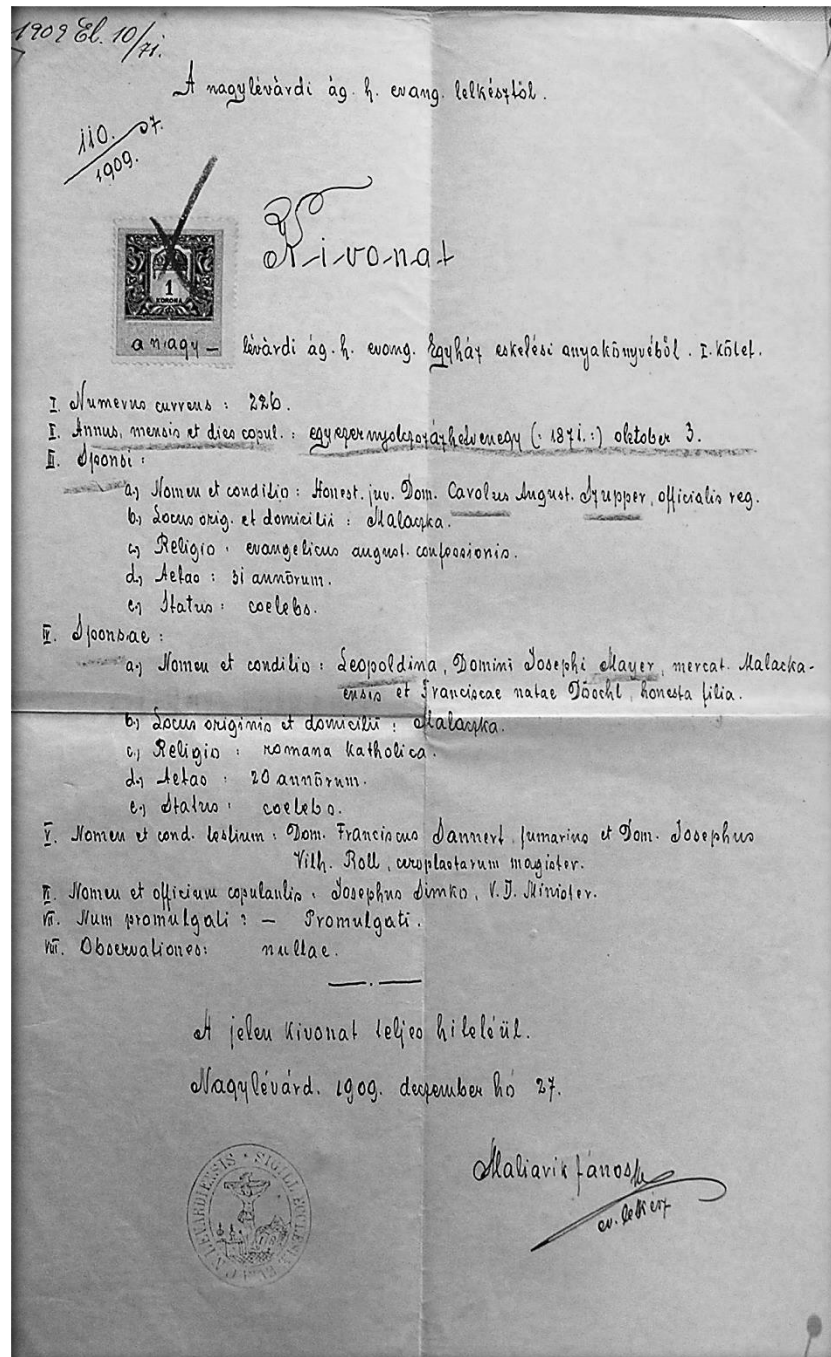 1909 El. 10/71.
A nagylévárdi ág. h. evang. lelkésztől.
110. 07.
1909.
Kivonat
1
KORONA
a nagy-
lévárdi ág. h. evang. Egyház esketési anyakönyvéből. I. kötet.
I. Numerus currens : 226.
II. Annus, mensis et dies copul. : egyezernyolczszázhetvenegy (: 1871. :) oktober 3.
III. Sponsi :
a.) Nomen et conditio : Honest. juv. Dom. Carolus August. Szupper, officialis reg.
b.) Locus orig. et domicilii : Malaczka.
c.) Religio : evangelicus august. confessionis.
d.) Aetas : 31 annōrum.
e.) Status : coelebs.
IV. Sponsae :
a.) Nomen et conditio : Leopoldina, Domini Josephi Mayer, mercat. Malaczka-
ensis et Franciscae natae Dōochl, honesta filia.
b.) Locus originis et domicilii : Malaczka.
c.) Religio : romana katholica.
d.) Aetas : 20 annōrum.
e.) Status : coelebs.
V. Nomen et cond. testium : Dom. Franciscus Dannert, fumarius et Dom. Josephus
Vilh. Roll, ceroplastarum magister.
VI. Nomen et officium copulantis : Josephus Simko, V. D. Minister.
VII. Num promulgati : — Promulgati.
VIII. Observationes : nullae.
A jelen kivonat teljes hiteléül.
Nagylévárd. 1909. deczember hó 27.
Maliarik János
ev. lelkész
SIGILL. ECCLESIAE
LEVARDIENSIS